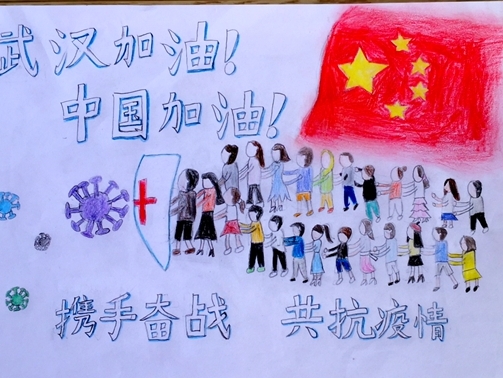 武汉加油!
中国加油!
携手奋战 共抗疫情